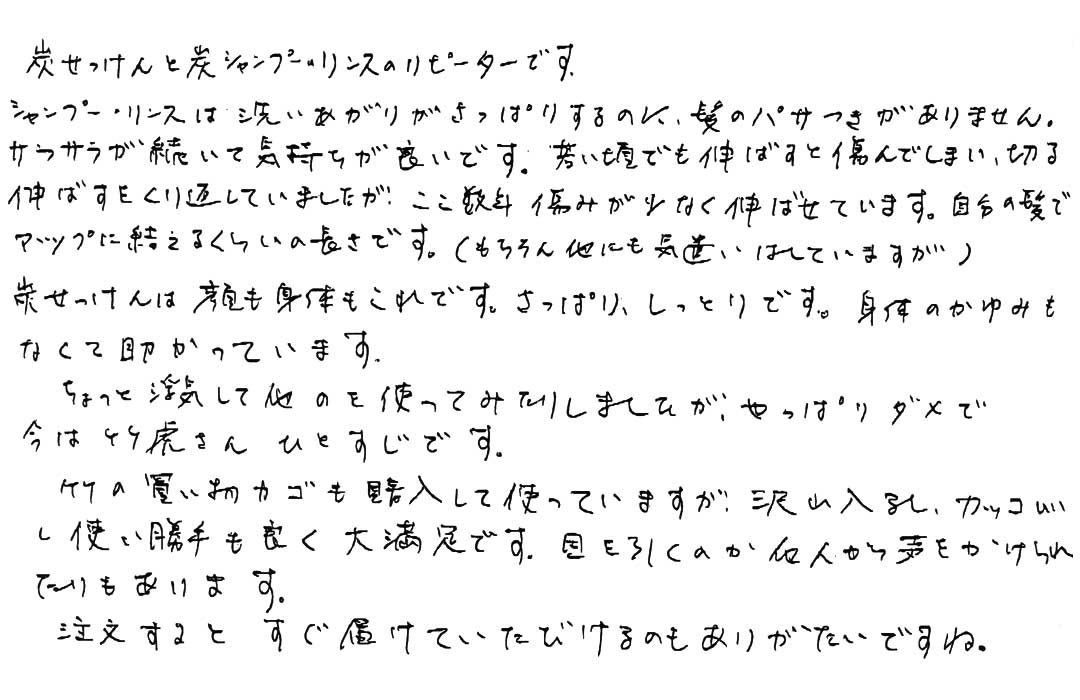 炭せっけんと炭シャンプー・リンスのリピーターです。
シャンプー・リンスは洗いあがりがさっぱりするのに、髪のパサつきがありません。
サラサラが続いて気持ちが良いです。若い頃でも伸ばすと傷んでしまい、切る
伸ばすをくり返していましたが、ここ数年傷みが少なく伸ばせています。自分の髪で
アップに結えるくらいの長さです。(もちろん他にも気遣いはしていますが)
炭せっけんは顔も身体もこれです。さっぱり、しっとりです。身体のかゆみも
なくて助かっています。
ちょっと浮気して他のを使ってみたりしましたが、やっぱりダメで
今は竹虎さんひとすじです。
竹の買い物カゴも購入して使っていますが、沢山入るし、カッコいい
し使い勝手も良く大満足です。目を引くのか他人から声をかけられ
たりもあります。
注文するとすぐ届けていただけるのもありがたいですね。